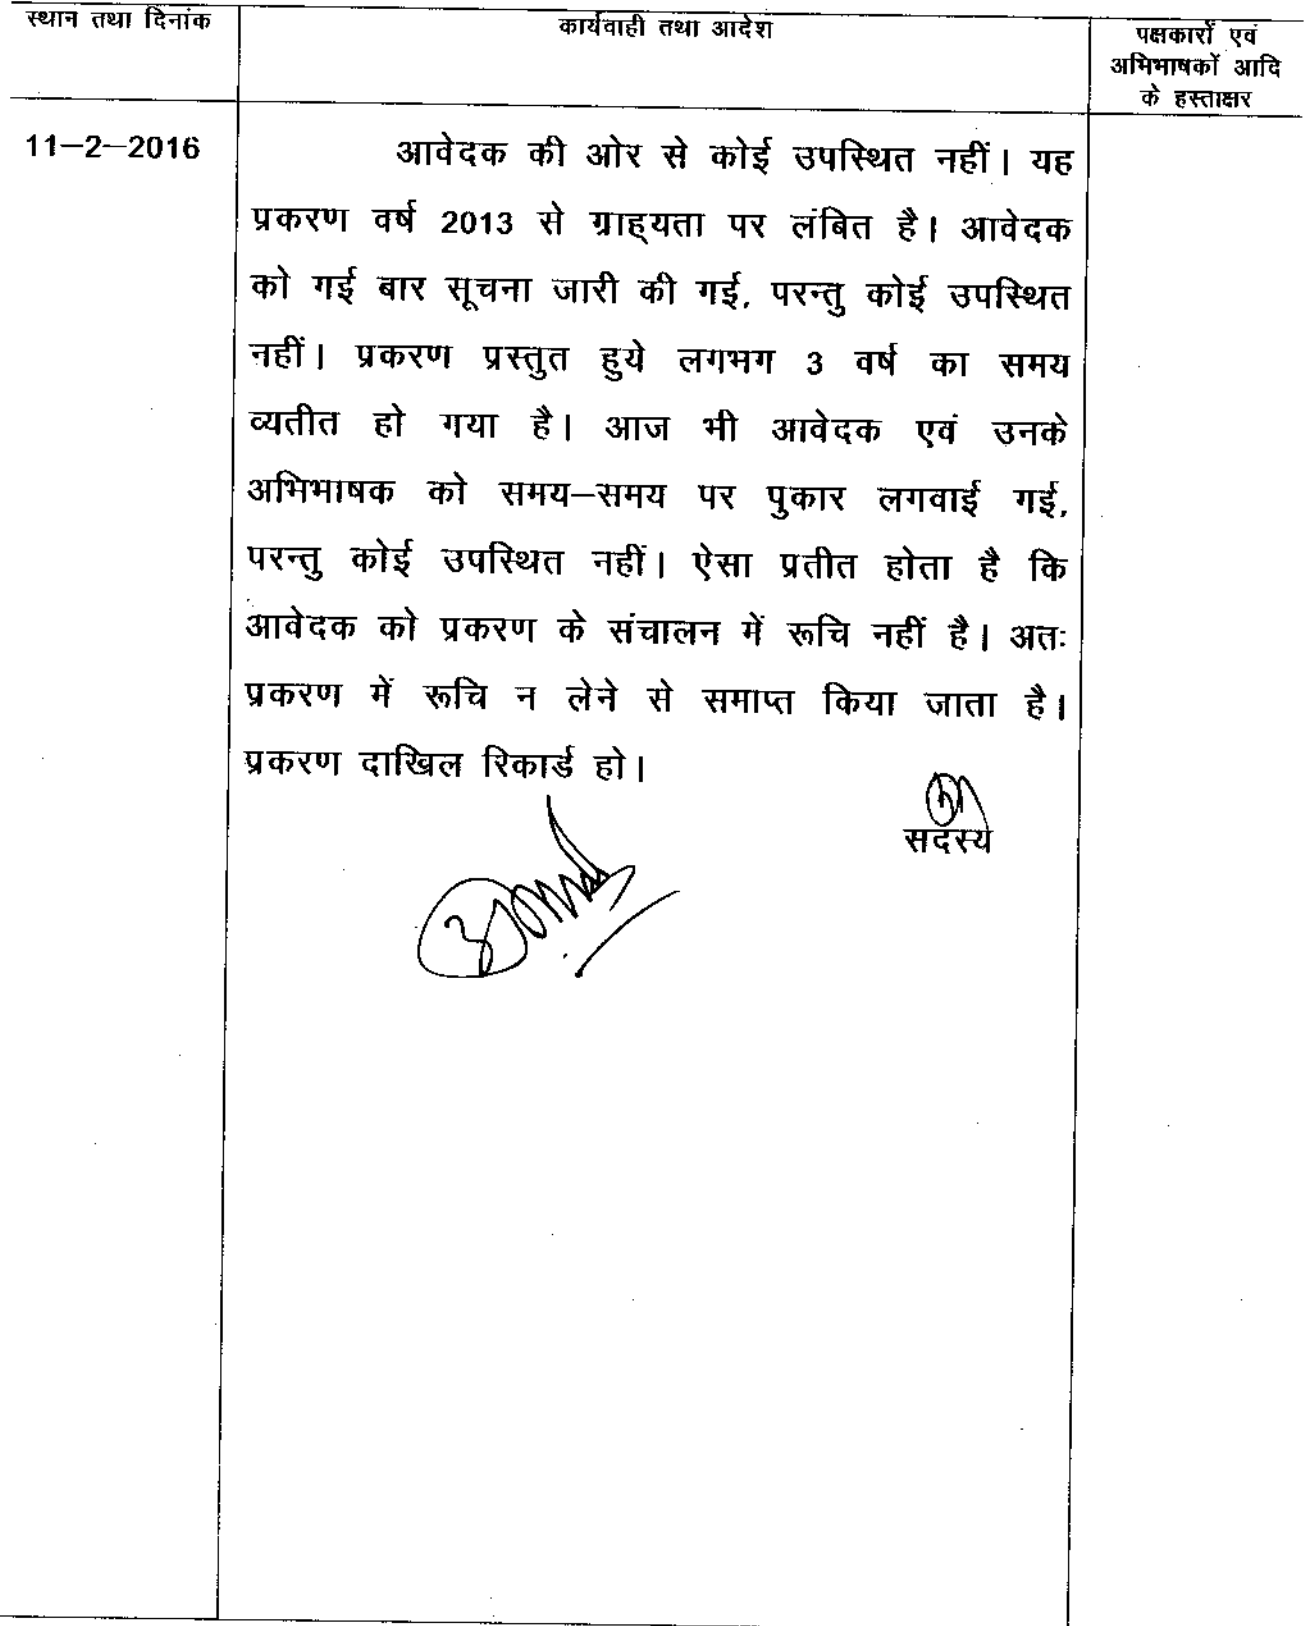 स्थान तथा दिनांक
कार्यवाही तथा आदेश
पक्षकारों एवं
अभिभाषकों आदि
के हस्ताक्षर
11—2—2016
आवेदक की ओर से कोई उपस्थित नहीं। यह
प्रकरण वर्ष 2013 से ग्राह्यता पर लंबित है। आवेदक
को गई बार सूचना जारी की गई, परन्तु कोई उपस्थित
नहीं। प्रकरण प्रस्तुत हुये लगभग 3 वर्ष का समय
व्यतीत हो गया है। आज भी आवेदक एवं उनके
अभिभाषक को समय—समय पर पुकार लगवाई गई,
परन्तु कोई उपस्थित नहीं। ऐसा प्रतीत होता है कि
आवेदक को प्रकरण के संचालन में रूचि नहीं है। अतः
प्रकरण में रूचि न लेने से समाप्त किया जाता है।
प्रकरण दाखिल रिकार्ड हो।
सदस्य